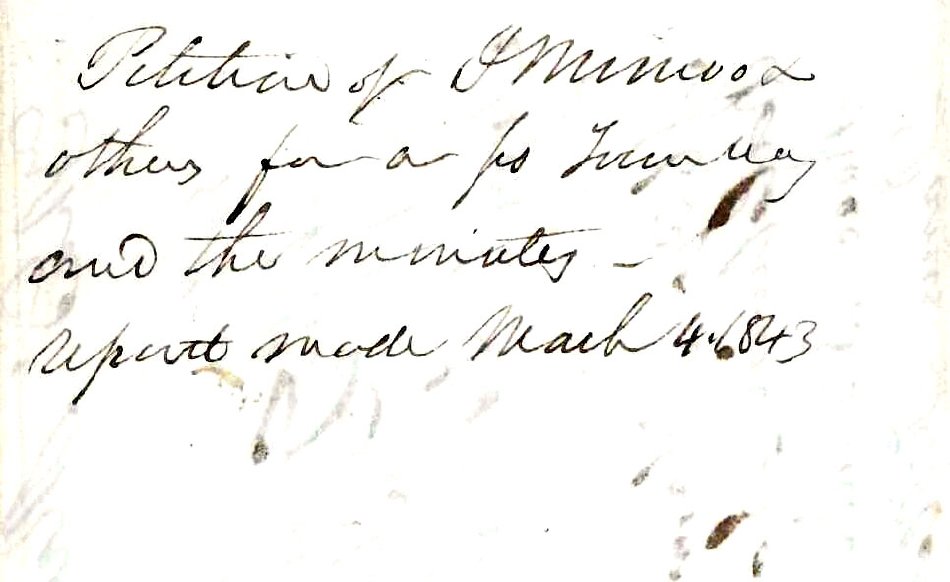 Petition of J Mincos &
others for a ps Town Way
and the minutes -
report made March 4 1843